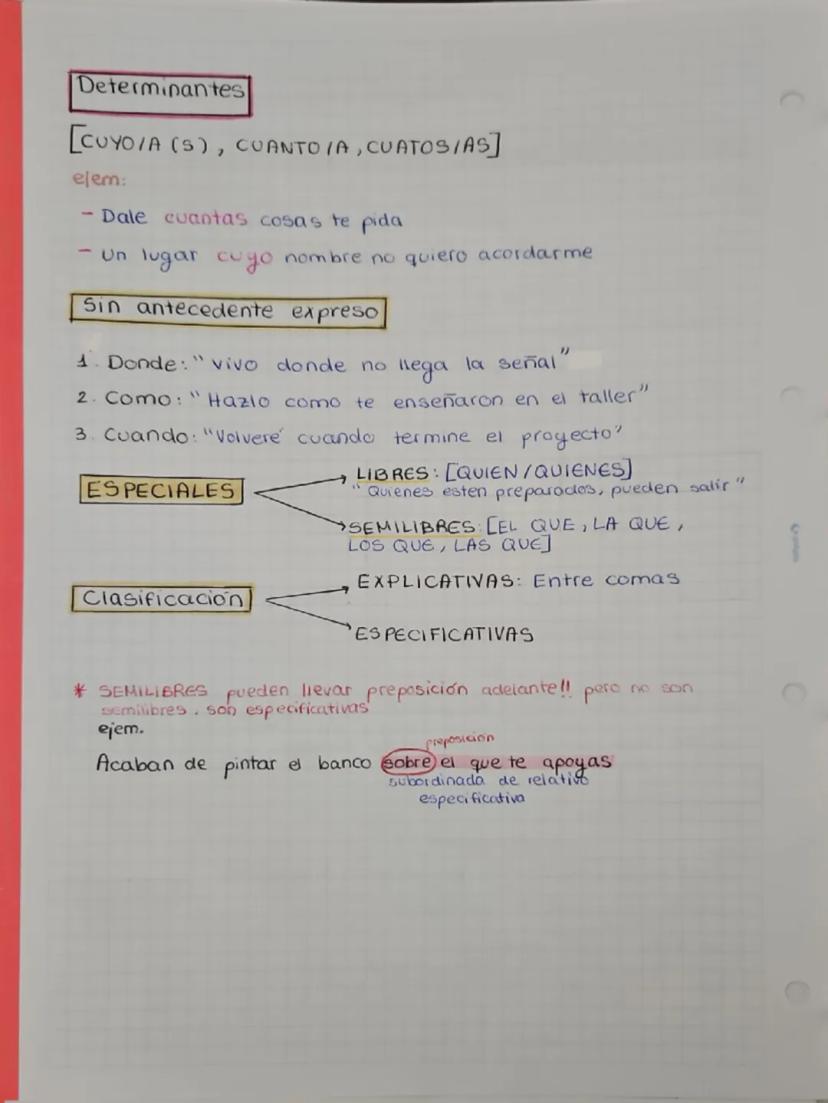 Determinantes
[CUYO/A (S), CUANTO/A, CUATOS/AS]
ejem:
- Dale cuantas cosas te pida
- Un lugar cuyo nombre no quiero acordarme
Sin antecedente expreso
1. Donde: "Vivo donde no llega la señal"
2. Como: "Hazlo como te enseñaron en el taller"
3. Cuando: "Volveré cuando termine el proyecto"
ESPECIALES
LIBRES: [QUIEN/QUIENES]
"Quienes esten preparados, pueden salir"
SEMILIBRES: [EL QUE, LA QUE,
LOS QUE, LAS QUE]
Clasificación
EXPLICATIVAS: Entre comas
ESPECIFICATIVAS
* SEMILIBRES pueden llevar preposición adelante!! pero no son
semilibres. son especificativas
ejem.
preposición
Acaban de pintar el banco sobre el que te apoyas
subordinada de relativo
especificativa